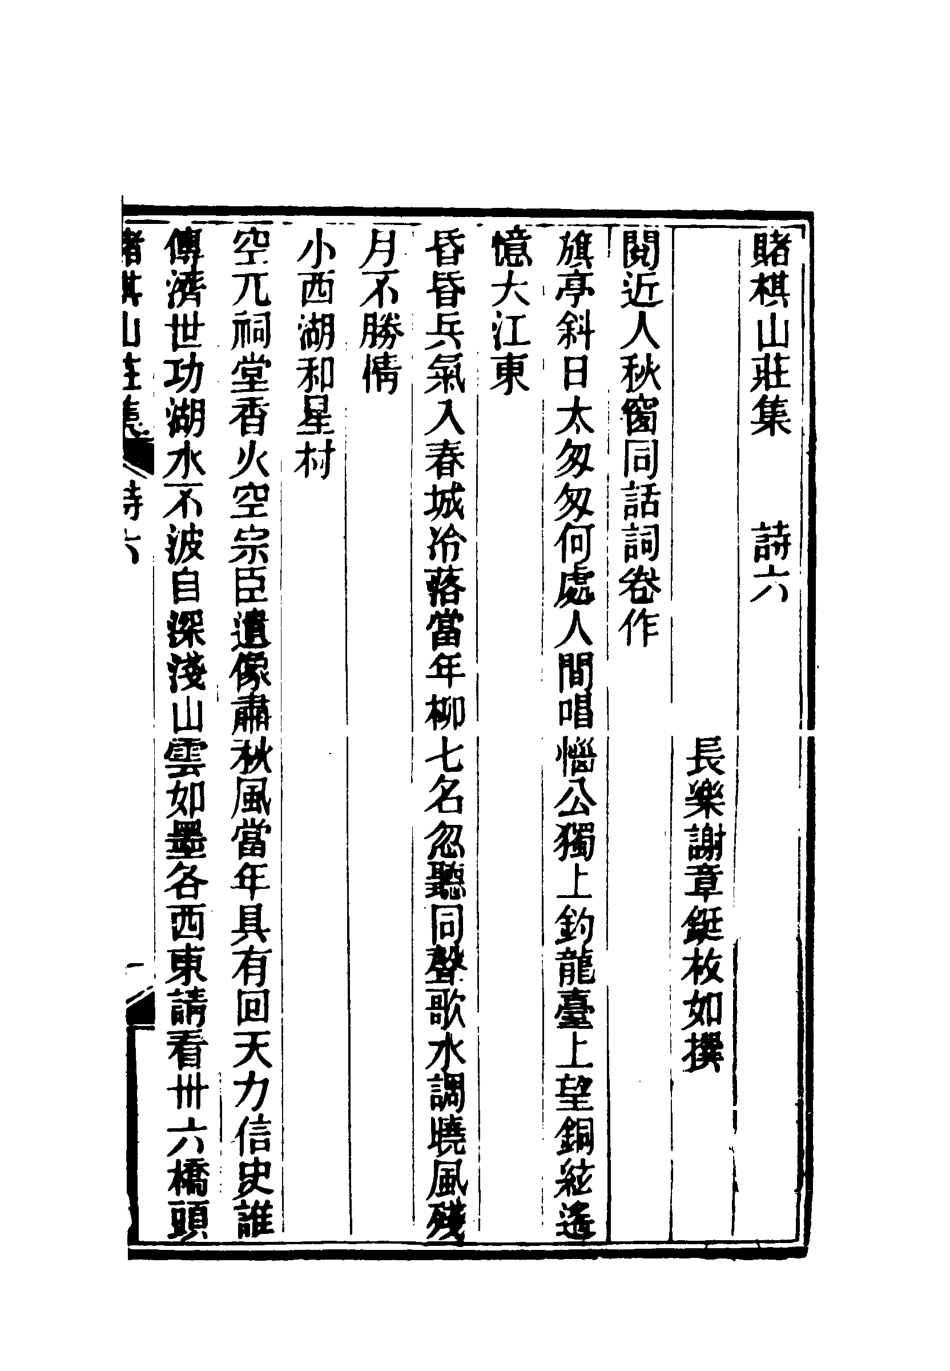 賭棋山莊集　詩六
長樂謝章鋌枚如撰
閱近人秋窗同話詞卷作
旗亭斜日太匆匆何處人間唱惱公獨上釣龍臺上望銅絃遙
憶大江東
昏昏兵氣入春城冷落當年柳七名忽聽同聲歌水調曉風殘
月不勝情
小西湖和星村
空兀祠堂香火空宗臣遺像肅秋風當年具有回天力信史誰
傳濟世功湖水不波自深淺山雲如墨各西東請看卅六橋頭
賭棋山莊集　詩六　一